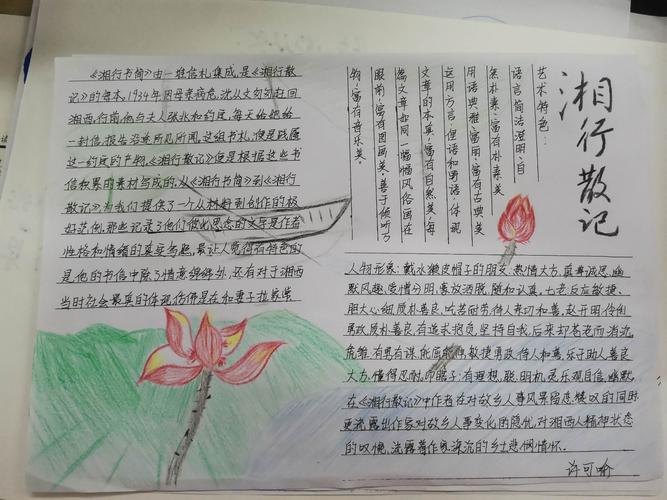 湘行散记
艺术特色:
语言简洁澄明,自
然朴素,富有朴素美
用语典雅,富用,富有古典美
运用方言,俚语和野语,体现
文章的本真,富有自然美,每
篇文章如同一幅幅风俗画在
眼前,富有图画美,善于倾听万
物,富有音乐美。
《湘行书简》由一组信札集成,是《湘行散
记》的母本。1934年因母亲病危,沈从文匆匆赶回
湘西,行前,他与夫人张兆和约定,每天给她写
一封信,报告沿途所见所闻,这组书札,便是践履
这一约定的产物。《湘行散记》便是根据这些书
信积累的素材写成的,从《湘行书简》到《湘行
散记》,为我们提供了一个从材料到创作的极
好范例,那些记录了他们彼此思念的文字是作者
性格和情绪的真实写照,最让人觉得有特色的
是,他的书信中除了情意绵绵外,还有对于湘西
当时社会最真的体现,仿佛是在和妻子拉家常
人物形象:戴水獭皮帽子的朋友,热情大方,真挚诚恳,幽
默风趣,爱憎分明,豪放洒脱,随和认真。七老反应敏捷、
胆大心细,质朴善良,吃苦耐劳,待人亲切和善。赵开明,伶俐
勇敢,质朴善良,有追求抱负,坚持自我,后来却苍老而消沉,
有勇有谋,能屈能伸,敏捷勇敢,待人和善,乐于助人,善良
大方,懂得忍耐,印瞎子:有理想,聪明机灵,乐观自信,幽默。
在《湘行散记》中作者在对故乡人事风景留恋,赞叹的同时
更流露出作家对故乡人事变化的隐忧,对湘西人精神状态
的叹惋,流露着作家深沉的乡土悲悯情怀。
许可喻